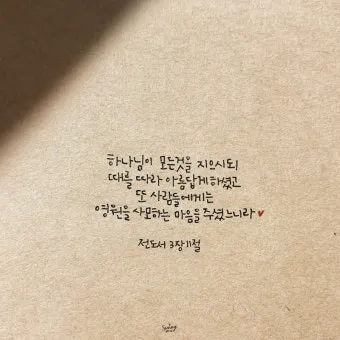 하나님이 모든것을 지으시되
때를 따라 아름답게 하셨고
또 사람들에게는
영원을 사모하는 마음을 주셨느니라
전도서 3장 11절